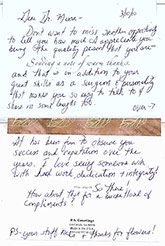 Dear Dr. Mena -
Don't want to miss another opportunity
to tell you how much I appreciate you
being the quality person that you are -
and that is in addition to your
great skills as a surgeon & personality
that makes you so easy to talk to &
share in some laughs too.
over →
It has been fun to observe your
success and reputation over the
years. I love seeing someone win
with hard work, dedication & integrity!
So there!
How about that for a bunch of
compliments?
PS - your staff needs thanks for flowers!